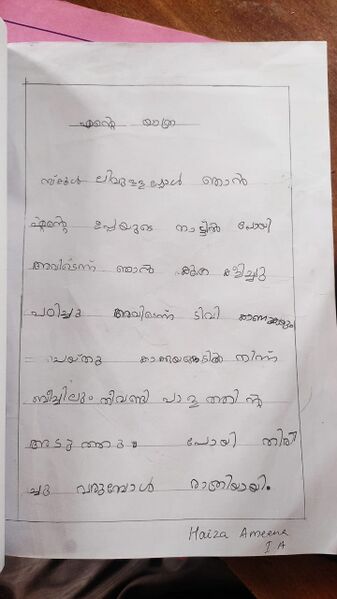 എന്റെ യാത്ര
സ്കൂൾ ലീവുള്ളപ്പോൾ ഞാൻ
എന്റെ ഉപ്പയുടെ നാട്ടിൽ പോയി
അവിടെന്ന് ഞാൻ കളിച്ചു
പഠിച്ചു അവിടെന്ന് ടിവി കാണുകയും
ചെയ്തു നിന്ന്
ബീച്ചിലും തീവണ്ടി പാളത്തിന്റ
അടുത്തും പോയി തിരി
ച്ചു വരുമ്പോൾ രാത്രിയായി.
Haiza Ameena
I A